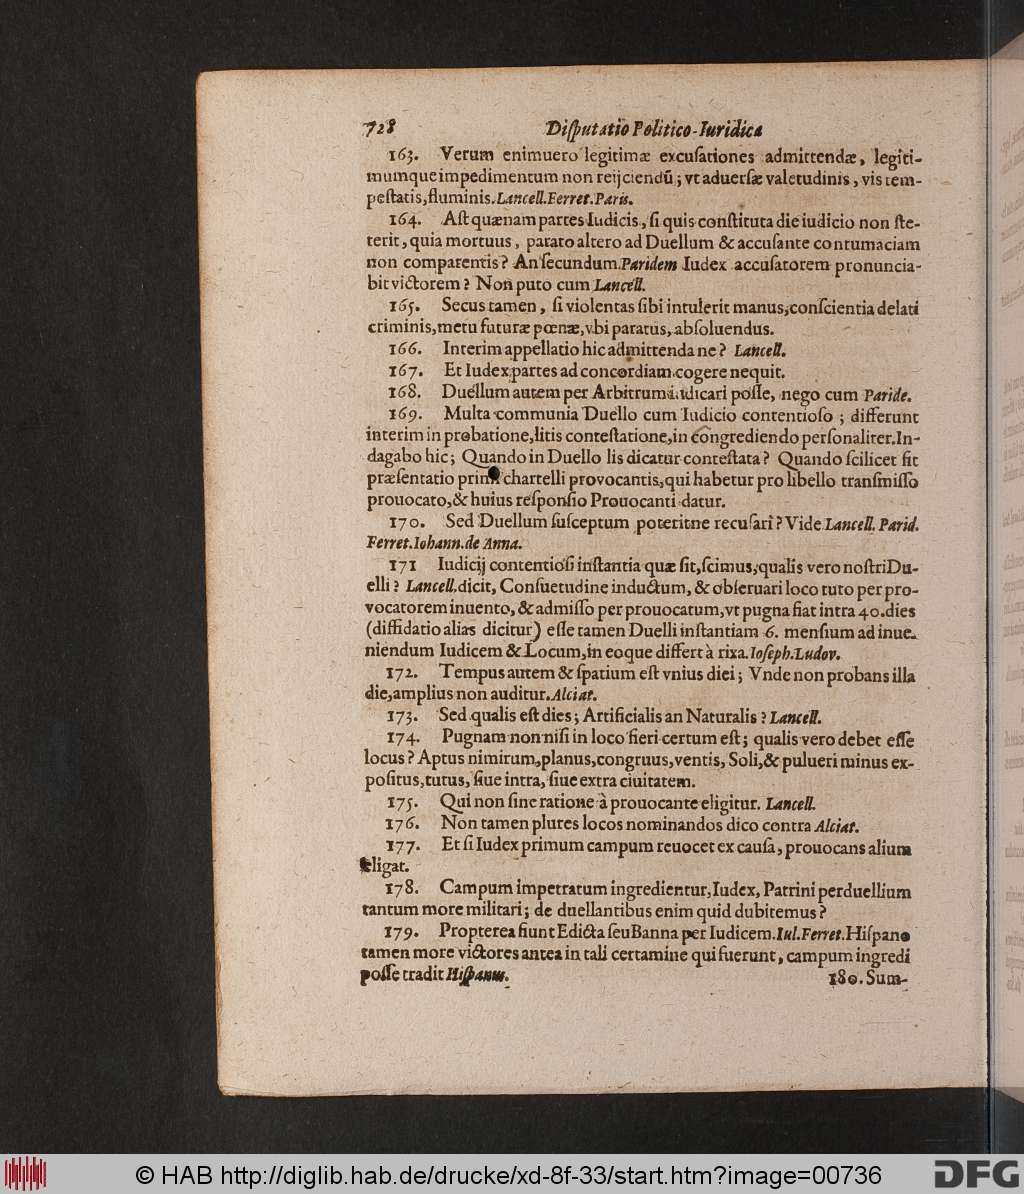 728 Diſputatio Politico-Iuridica
163. Verum enimuero legitimæ excuſationes admittendæ, legiti-
mumque impedimentum non reijciendū; vt aduerſæ valetudinis, vis tem-
peſtatis, fluminis. Lancell. Ferret. Paris.
164. Aſt quænam partes Iudicis, ſi quis conſtituta die iudicio non ſte-
terit, quia mortuus, parato altero ad Duellum & accuſante contumaciam
non comparentis? An ſecundum Paridem Iudex accuſatorem pronuncia-
bit victorem? Non puto cum Lancell.
165. Secus tamen, ſi violentas ſibi intulerit manus, conſcientia delati
criminis, metu futuræ pœnæ, vbi paratus, abſoluendus.
166. Interim appellatio hic admittenda ne? Lancell.
167. Et Iudex partes ad concordiam cogere nequit.
168. Duellum autem per Arbitrum iudicari poſſe, nego cum Paride.
169. Multa communia Duello cum Iudicio contentioſo; differunt
interim in probatione, litis conteſtatione, in congrediendo perſonaliter. In-
dagabo hic; Quando in Duello lis dicatur conteſtata? Quando ſcilicet fit
præſentatio primi chartelli provocantis, qui habetur pro libello tranſmiſſo
prouocato, & huius reſponſio Prouocanti datur.
170. Sed Duellum ſuſceptum poteritne recuſari? Vide Lancell. Parid.
Ferret. Iohann. de Anna.
171 Iudicij contentioſi inſtantia quæ ſit, ſcimus, qualis vero noſtri Du-
elli? Lancell. dicit, Conſuetudine inductum, & obſeruari loco tuto per pro-
vocatorem inuento, & admiſſo per prouocatum, vt pugna fiat intra 40. dies
(diffidatio alias dicitur) eſſe tamen Duelli inſtantiam 6. menſium ad inue-
niendum Iudicem & Locum, in eoque differt à rixa. Ioſeph. Ludov.
172. Tempus autem & ſpatium eſt vnius diei; Vnde non probans illa
die, amplius non auditur. Alciat.
173. Sed qualis eſt dies; Artificialis an Naturalis? Lancell.
174. Pugnam non niſi in loco fieri certum eſt; qualis vero debet eſſe
locus? Aptus nimirum, planus, congruus, ventis, Soli, & pulueri minus ex-
poſitus, tutus, ſiue intra, ſiue extra ciuitatem.
175. Qui non ſine ratione à prouocante eligitur. Lancell.
176. Non tamen plures locos nominandos dico contra Alciat.
177. Et ſi Iudex primum campum reuocet ex cauſa, prouocans alium
eligat.
178. Campum impetratum ingredientur, Iudex, Patrini perduellium
tantum more militari; de duellantibus enim quid dubitemus?
179. Propterea fiunt Edicta ſeu Banna per Iudicem. Iul. Ferret. Hiſpano
tamen more victores antea in tali certamine qui fuerunt, campum ingredi
poſſe tradit Hiſpanus.
180. Sum-
© HAB http://diglib.hab.de/drucke/xd-8f-33/start.htm?image=00736
DFG